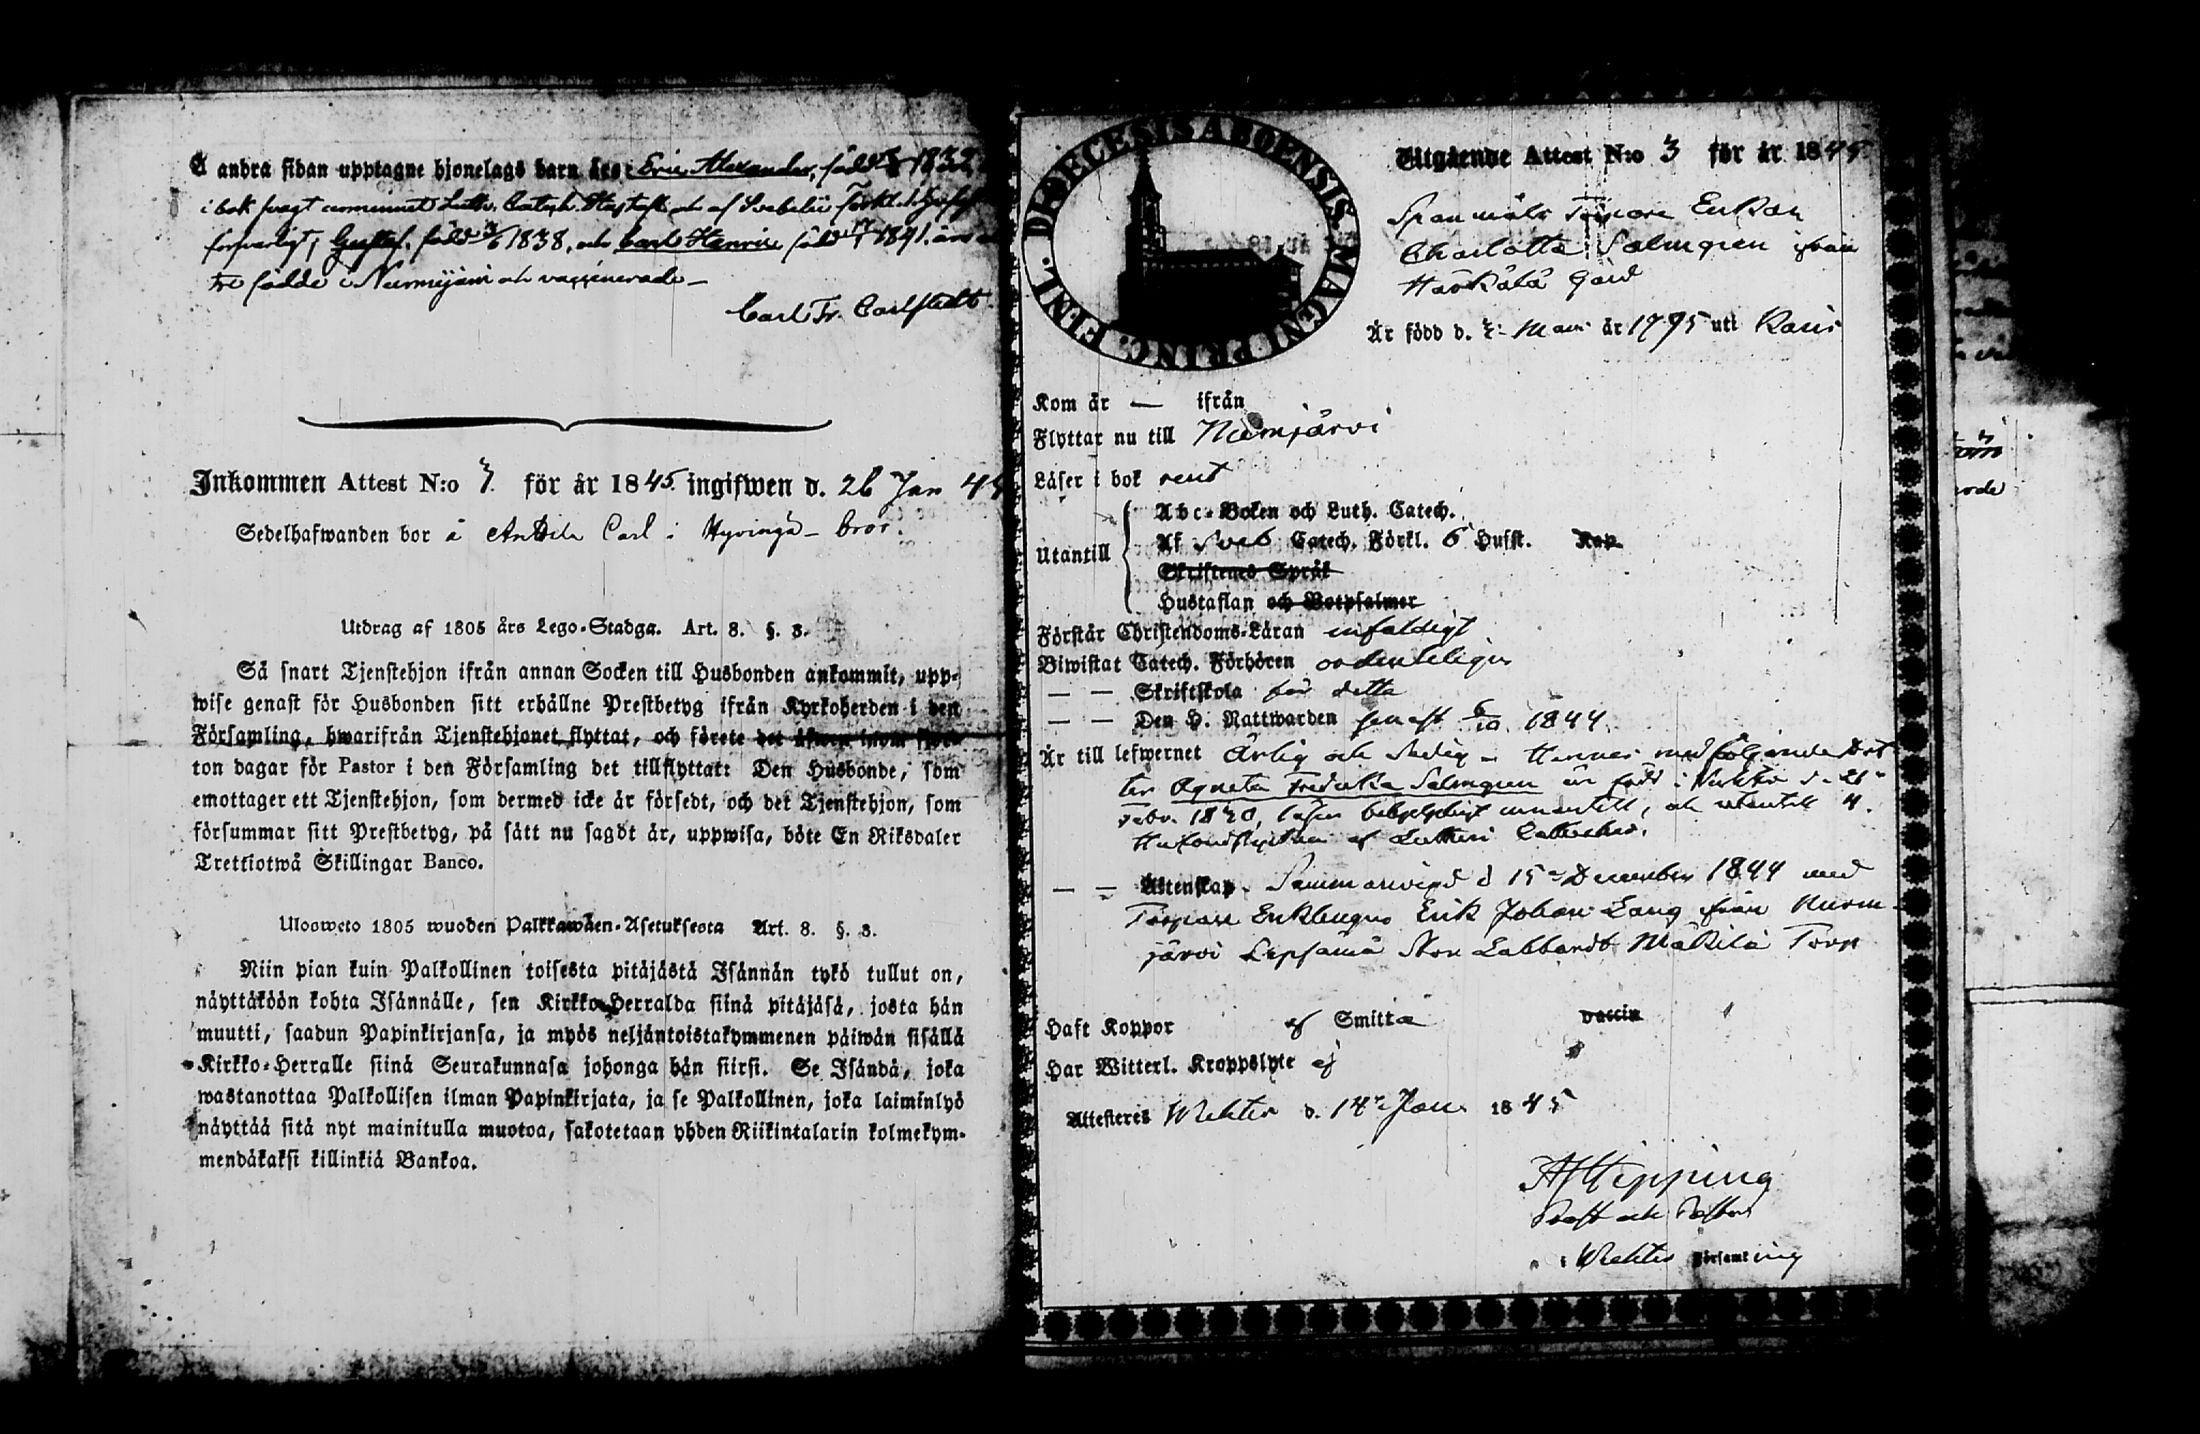 Å andra sidan upptagne hjonelags barn äro: Eric Alexander, född 1832
i bok svagt innennet Luth. Catech. Hustafl. och af Svebelii Förkl.
försvarligt; Gustaf, född 1838, och Carl Henric född 1841. äro
tre födde i Nurmijärvi och vaccinerade –
Carl Fr. Carlstedt.
Inkommen Attest N:o 7. för år 1845. ingifwen d. 26 Jan 45
Sedelhafwanden bor å Anttila Carl i Hyvinge – bror.
Utdrag af 1805 års Lego-Stadga. Art. 8. §. 3.
Så snart Tjenstehjon ifrån annan Socken till Husbonden ankommit, upp-
wise genast för Husbonden sitt erhållne Prestbetyg ifrån Kyrkoherden i den
Församling, hwarifrån Tjenstehjonet flyttat, och förete det äfwen inom fjor-
ton dagar för Pastor i den Församling det tillflyttat: Den Husbonde, som
emottager ett Tjenstehjon, som dermed icke är försedt, och det Tjenstehjon, som
försummar sitt Prestbetyg, på sätt nu sagdt är, uppwisa, böte En Riksdaler
Trettiotwå Skillingar Banco.
Ulosweto 1805 wuoden Palkkawäen-Asetuksesta Art. 8. §. 3.
Niin pian kuin Palkollinen toisesta pitäjästä Isännän tykö tullut on,
näyttäköön kohta Isännälle, sen Kirkko-Herralda siinä pitäjäsä, josta hän
muutti, saadun Papinkirjansa, ja myös neljäntoistakymmenen päiwän sisällä
Kirkko-Herralle siinä Seurakunnasa johonga hän siirsi. Se Isändä, joka
wastanottaa Palkollisen ilman Papinkirjata, ja se Palkollinen, joka laiminlyö
näyttää sitä nyt mainitulla muotoa, sakotetaan yhden Riikintalarin kolmekym-
mendäkaksi killinkiä Bankoa.
DIOECESIS ABOENSIS. MAGNI PRINC. FINL.
Utgående Attest N:o 3 för år 1845
Spanmåls Torpare Enkan
Charlotta Salmgren ifrån
Härkälä Gård
Är född d. Mars år 1795 uti Karis
Kom år — ifrån
Flyttar nu till Nurmjärvi
Läser i bok rent
Abc-Boken och Luth. Catech.
Utantill Af Sveb Catech. Förkl. 6 Hufst. Kap.
Skriftenes Språk
Hustaflan och Botpsalmer
Förstår Christendoms-Läran enfaldigt
Biwistat Catech. Förhören ordenteligen
— — Skriftskola för detta
— — Den H. Nattwarden senast 6/10 1844.
Är till lefwernet ärlig och sedig – Hennes medföljande dot
ter Agneta Fredrika Salmgren är född i Wichtis d. 21
Febr. 1820, läser innantill, och utantill 4.
Hufvudstycken af Lutheri Catheches.
— — Äktenskap. Sammanvigd d 15 December 1844 med
Torpare Enklingen Erik Johan Lang från Nurm-
järvi Lepsämä Stor Labbards Mäkilä Torp
Haft Koppor ej Smitta vaccin
Har Witterl. Kroppslyte ej
Attesteres Wichtis d. 14 Jan. 1845
AJ Hipping
Prost och Pastor
i Wichtis Församling